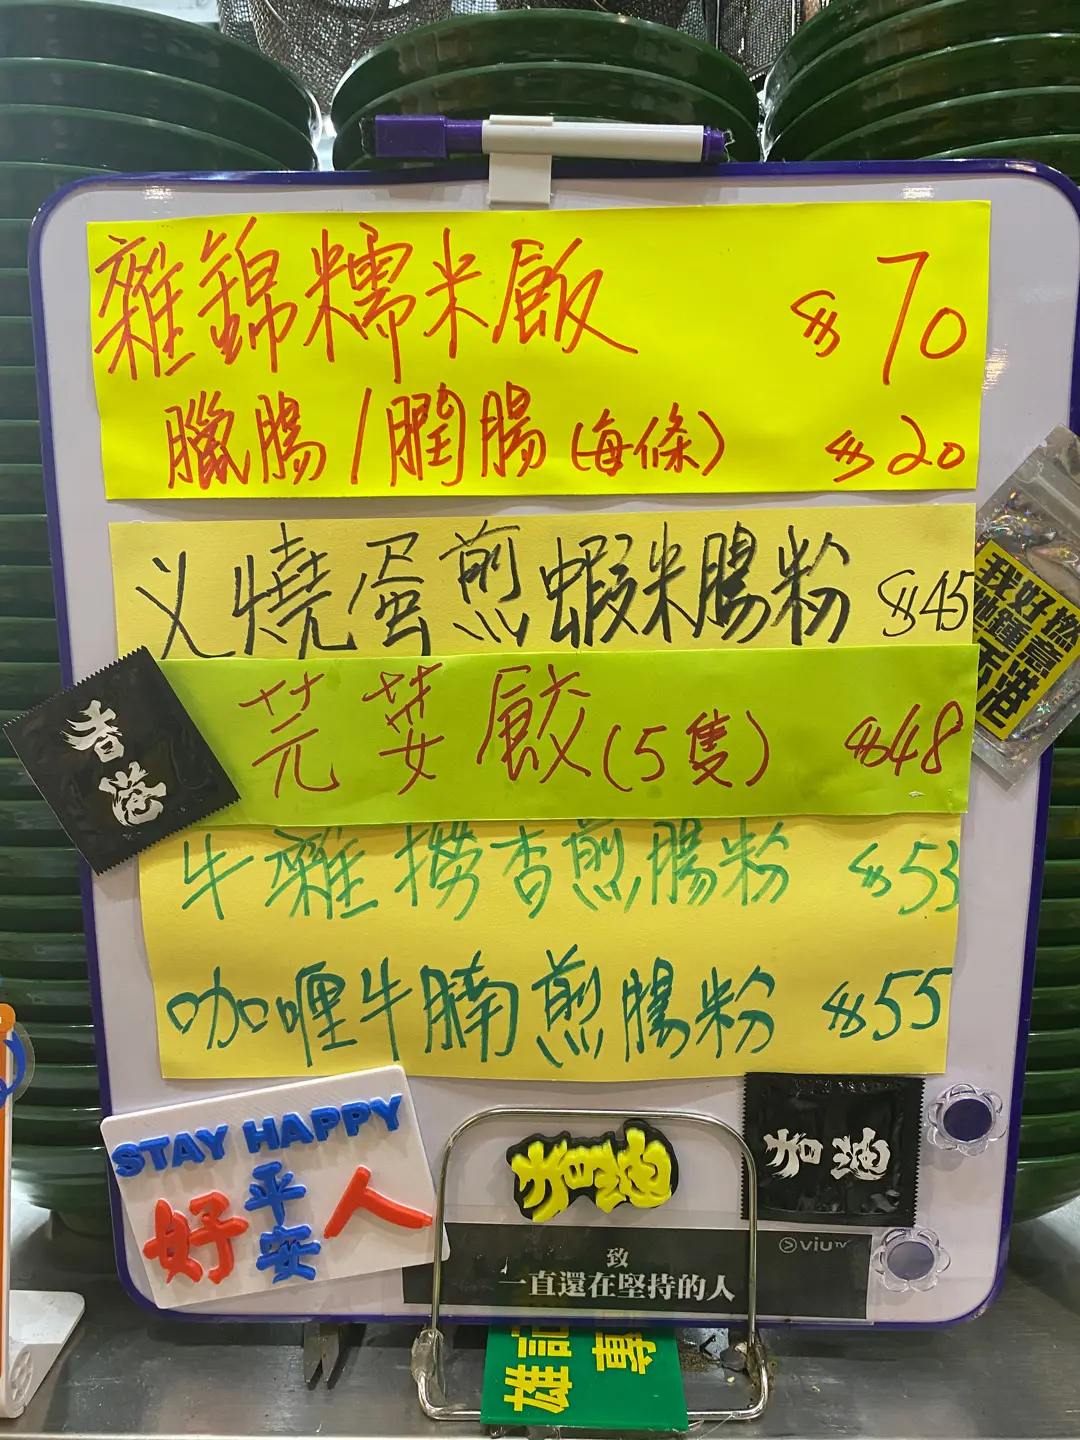 雜錦糯米飯 $70
臘腸/膶腸(每條) $20
乂燒蛋煎蝦米腸粉 $45
芫荽餃(5隻) $48
牛雜撈杏煎腸粉 $53
咖喱牛腩煎腸粉 $55
香港
我好撚
中意
香港
STAY HAPPY
好
平
安
人
香港
香港
viuTV
致
一直還在堅持的人
雄記
專